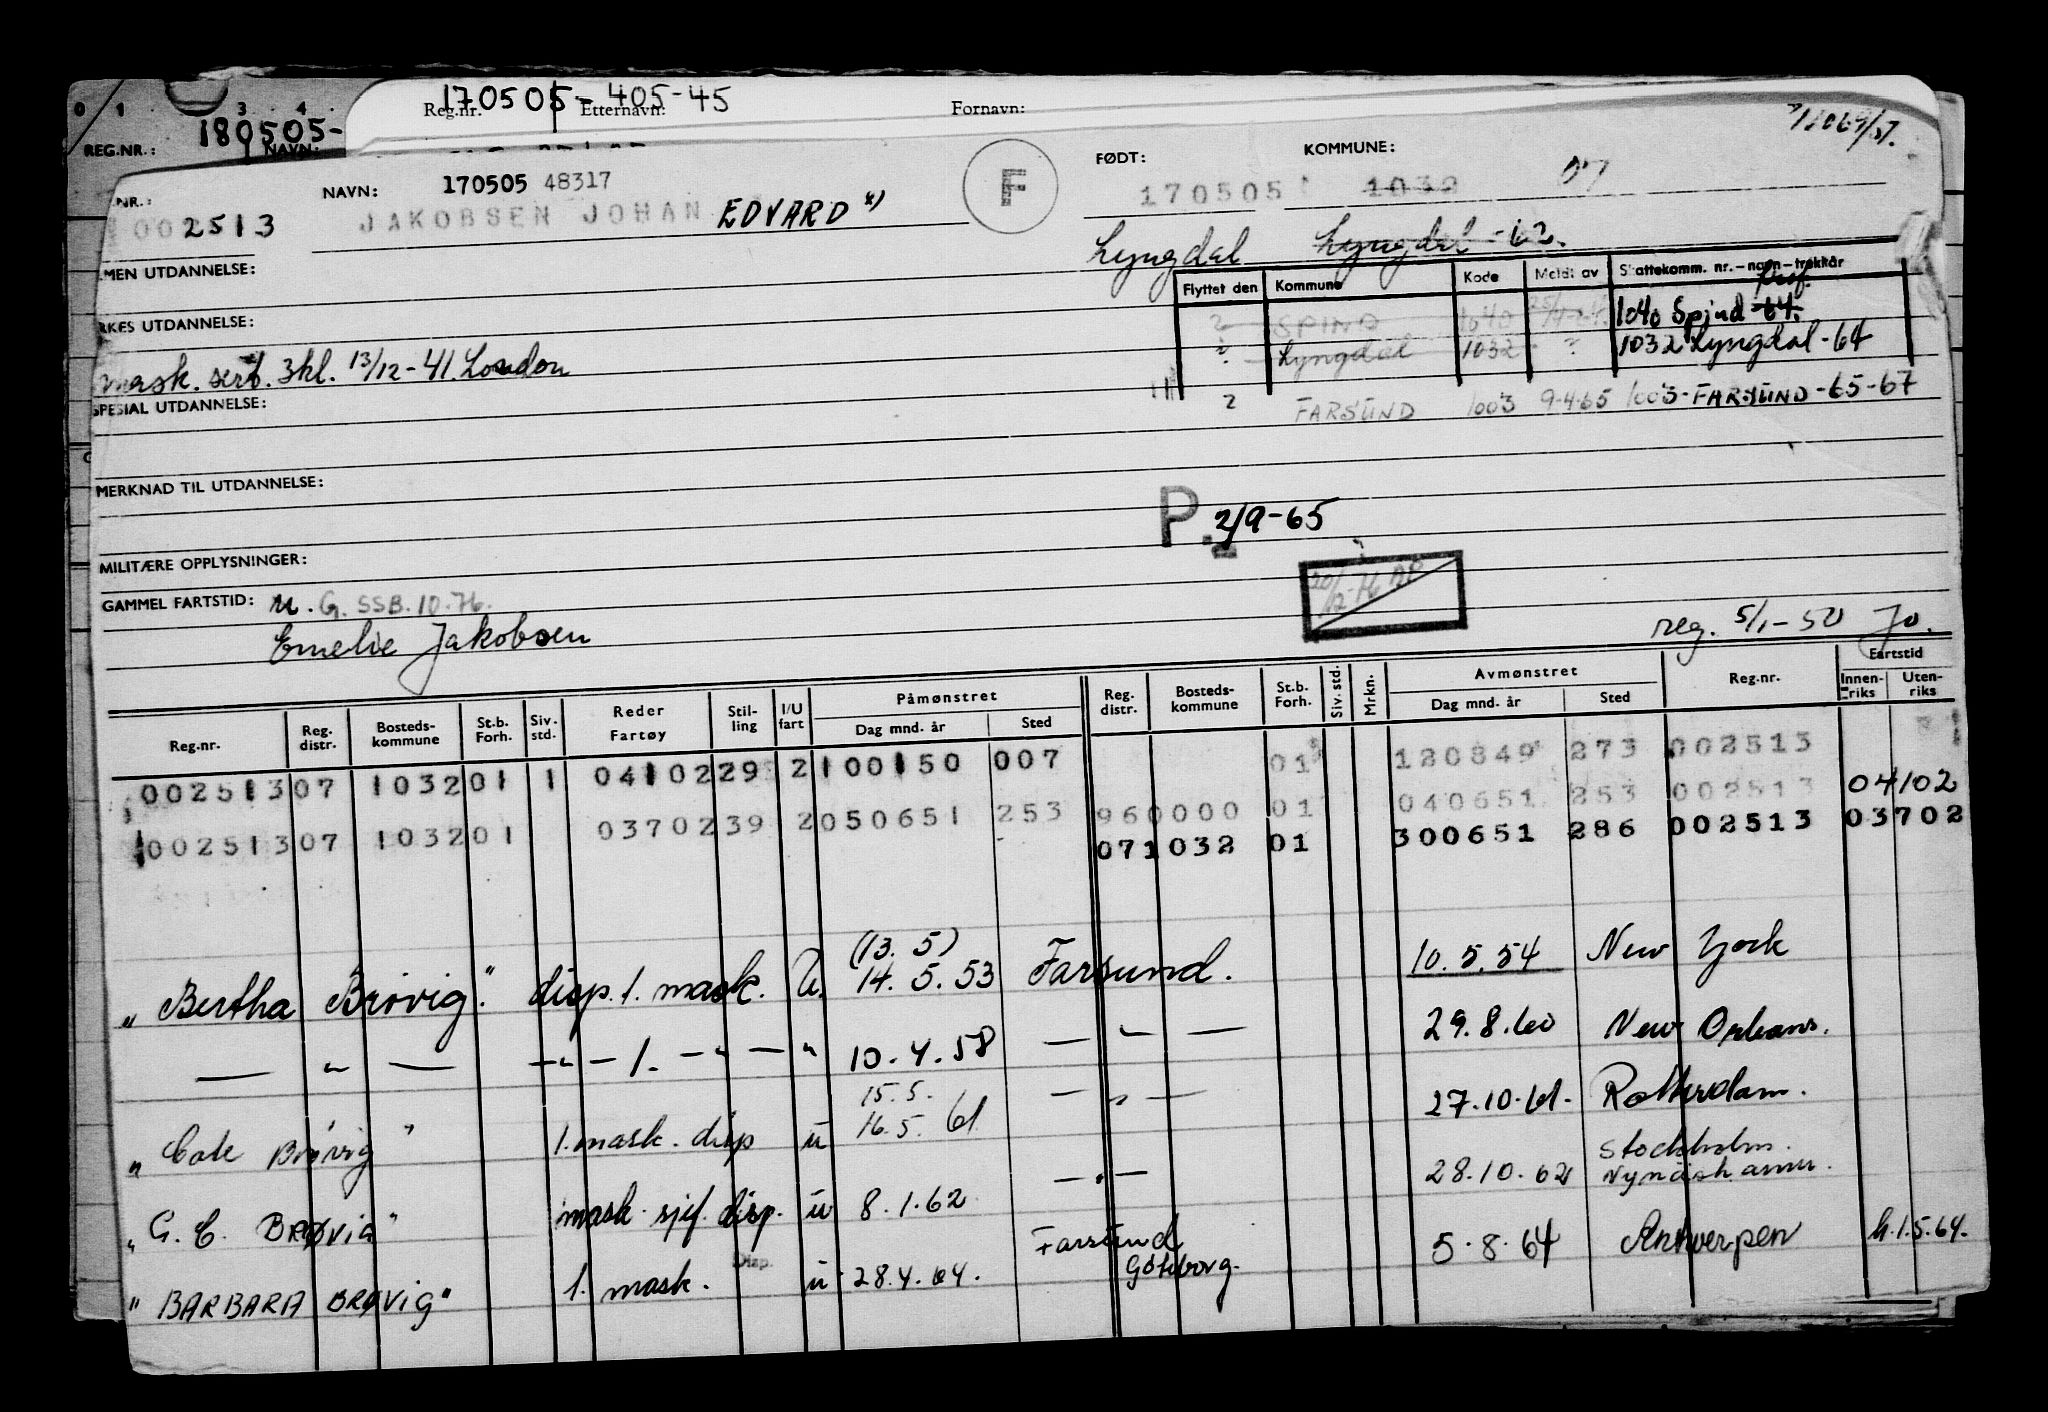 0 1 3 4
170505-405-45
Reg.nr. Etternavn: Fornavn:
180505-
REG.NR.: NAVN:
FØDT: KOMMUNE:
NR.: NAVN: 170505 48317 F 170505 1032 07
002513 JAKOBSEN JOHAN EDVARD
Lyngdal Lyngdal -62.
MEN UTDANNELSE:
Flyttet den Kommune Kode Meldt av Skattekomm. nr.–navn–trekkår
? SPIND 1040 1040 Spind -64.
RKES UTDANNELSE:
? Lyngdal 1032 ? 1032 Lyngdal -64
mask. sert. 3kl. 13/12-41. London
2 FARSUND 1003 9-4-65 1003-FARSUND-65-67
SPESIAL UTDANNELSE:
MERKNAD TIL UTDANNELSE:
P. 2/9-65
MILITÆRE OPPLYSNINGER:
GAMMEL FARTSTID: u. G. SSB. 10-76.
Emelie Jakobsen
reg. 5/1-50 Jo.
Reg.nr. Reg. distr. Bosteds- kommune St.b. Forh. Siv. std. Reder Fartøy Stil- ling I/U fart Påmønstret Dag mnd. år Sted Reg. distr. Bosteds- kommune St.b. Forh. Siv. std. Mrkn. Avmønstret Dag mnd. år Sted Reg.nr. Fartstid Innen- riks Uten- riks
002513 07 1032 01 1 04102 29 2 100150 007 01 120849 273 002513
96 0000 01 040651 253 002513 04102
002513 07 1032 01 03702 39 2 050651 253 07 1032 01 300651 286 002513 03702
(13. 5)
"Bertha Brøvig." disp. 1. mask. U. 14. 5. 53 Farsund. 10. 5. 54 New York
— " — — " — 1. — " — " 10. 4. 58 — " — 29. 8. 60 New Orleans.
15. 5.
"Cate Brøvig" 1. mask. disp u 16. 5. 61 — " — 27. 10. 61. Rotterdam.
"G. C. BRØVIG" mask. sjef. disp. u 8. 1. 62 — " — 28. 10. 62 Stockholm. Nynäshamn.
"BARBARA BRØVIG" 1. mask. Disp. u 28. 4. 64. Farsund Göteborg. 5. 8. 64 Antwerpen h. 1. 5. 64.